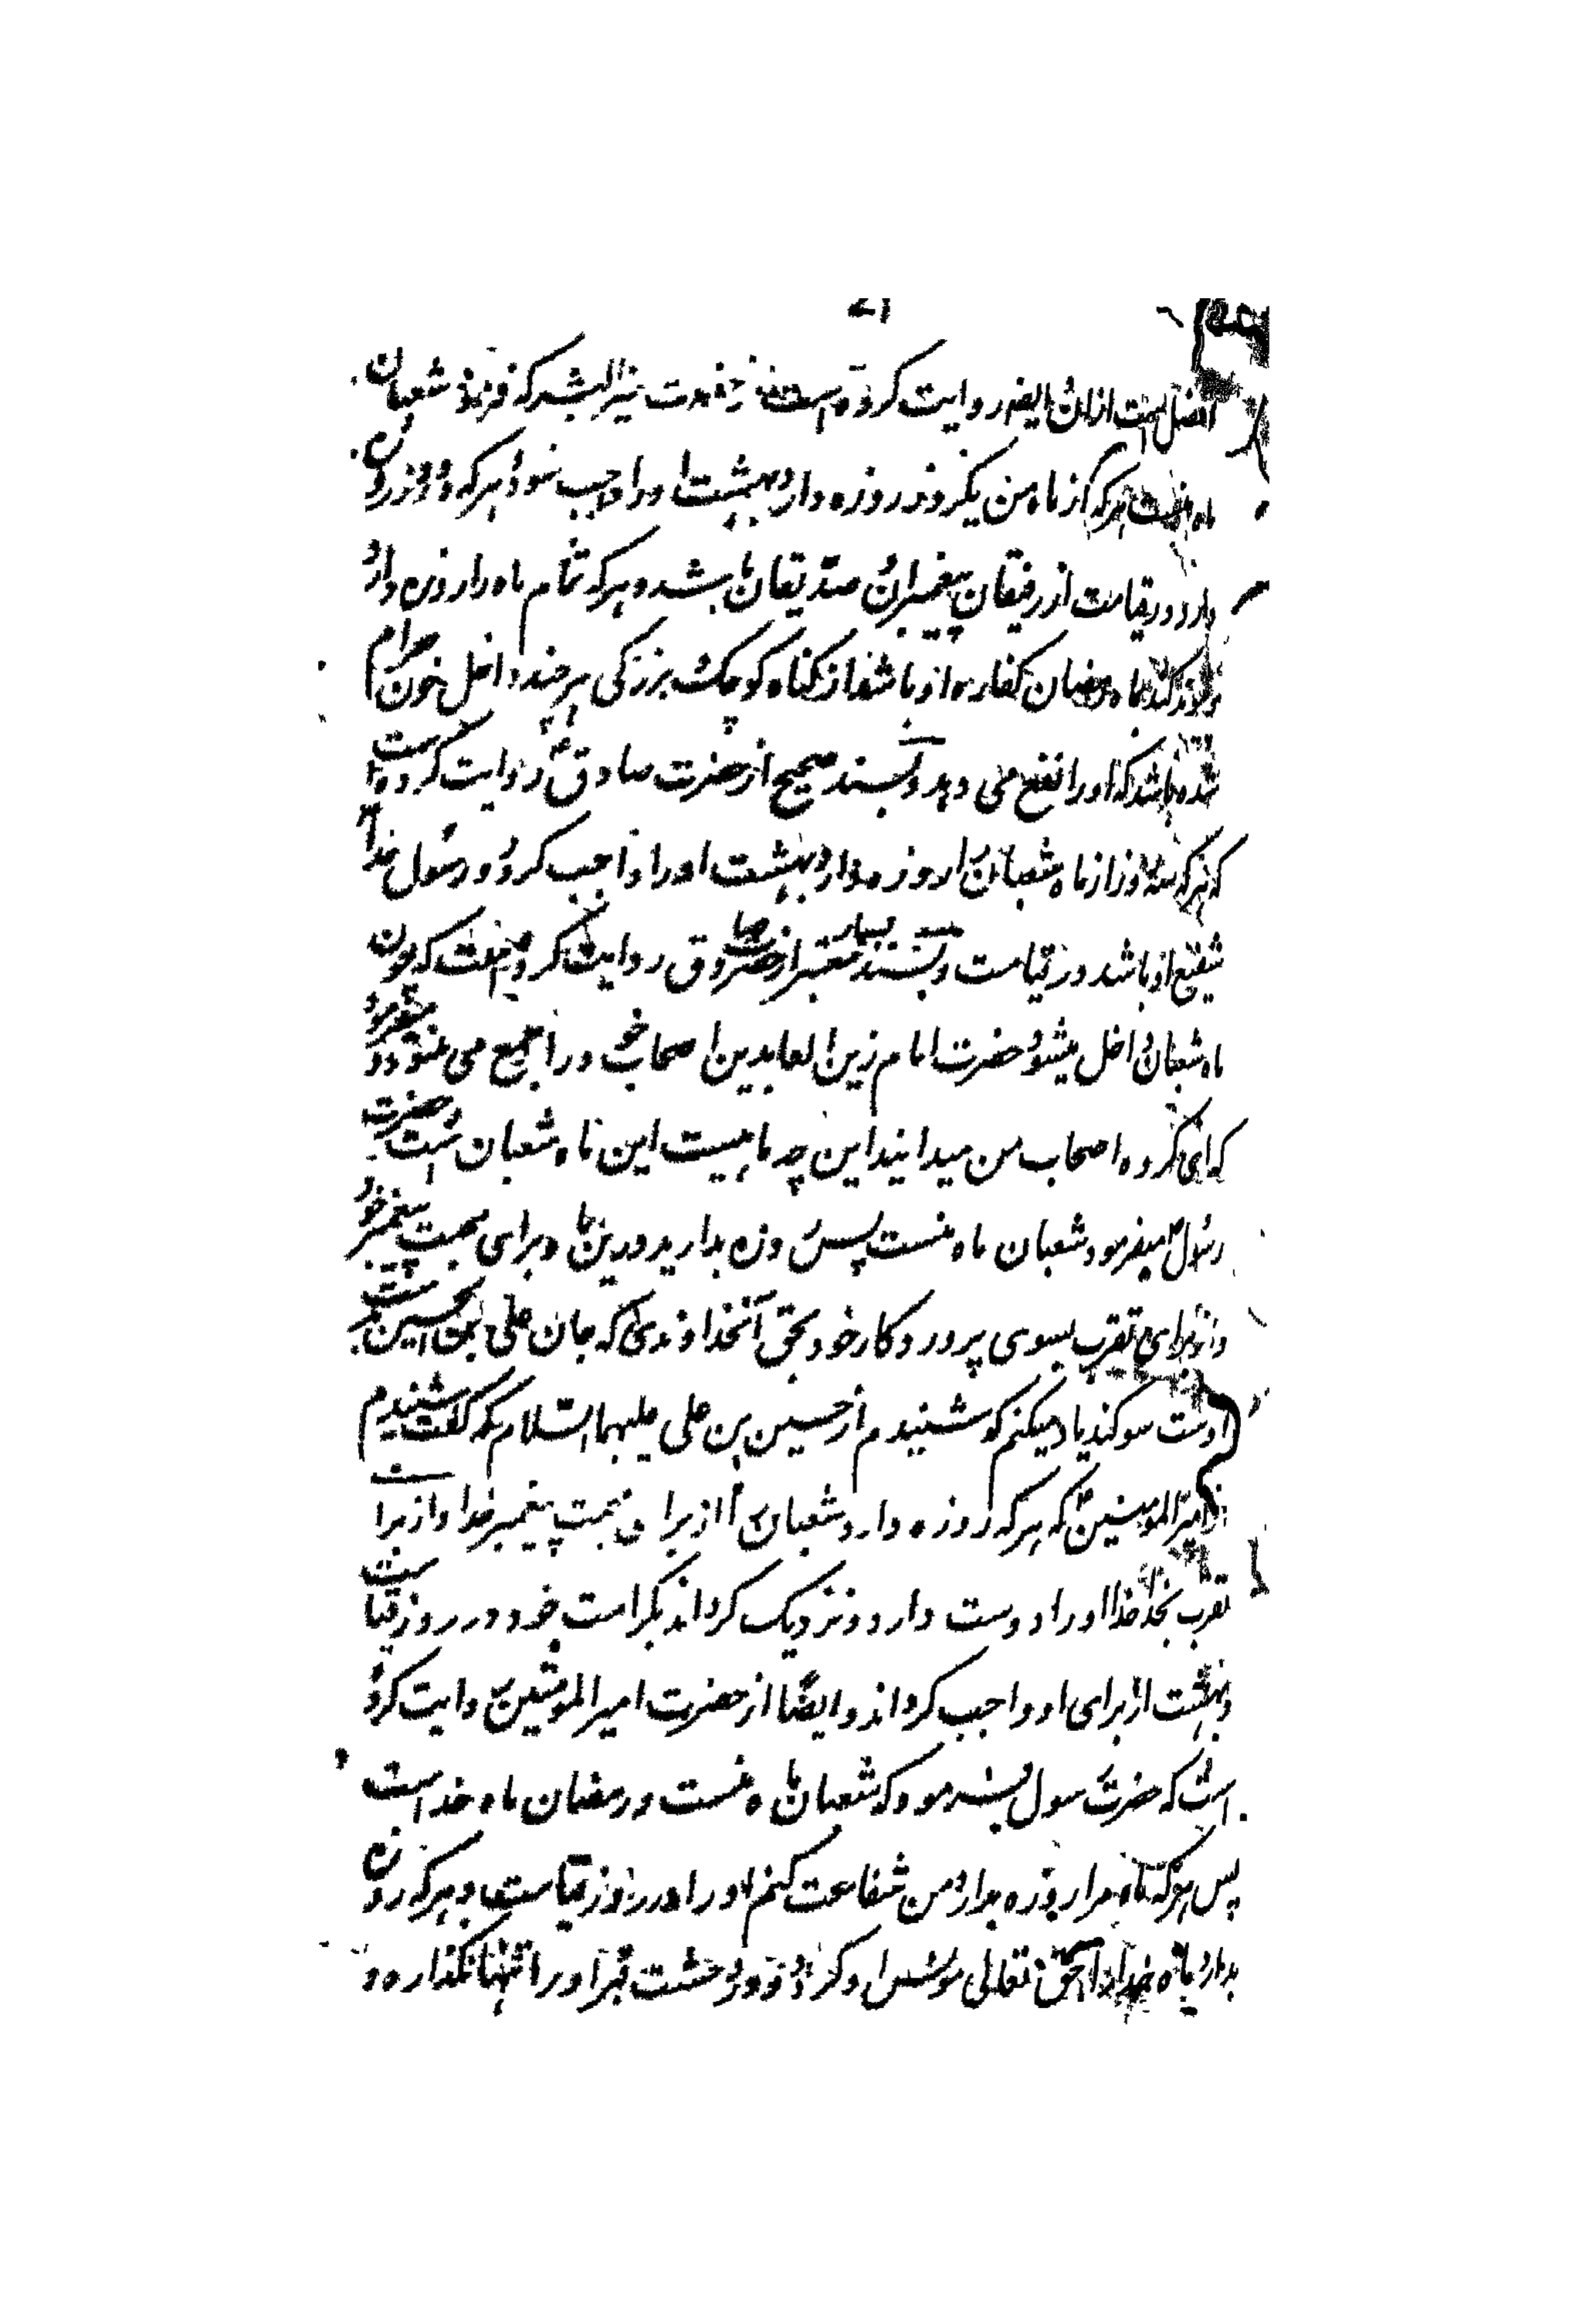 افضل است از ان و ایضا روایت کرده است از حضرت خیر البشر که فرمود شعبان
ماه منست هر که از ماه من یکروز روزه دارد بهشت او را واجب شود و هر که دو روز روزه
دارد در قیامت از رفیقان پیغمبران و صدیقان باشد و هر که تمام ماه را روزه دارد
و پیوند کند بماه رمضان کفاره او باشد از گناه کوچک و بزرگی هر چند داخل خون حرام
شده باشد که او را نفع می دهد و بسند صحیح از حضرت صادق ع روایت کرده است
که هر که سه روز از ماه شعبان را روزه دارد بهشت او را واجب کردد و رسول خدا
شفیع او باشد در قیامت و بسند معتبر از حضرت صادق روایت کرده است که چون
ماه شعبان داخل میشود حضرت امام زین العابدین اصحاب خود را جمع می نمود و میفرمود
که ای گروه اصحاب من میدانید این چه ماهیست این ماه شعبان است و حضرت
رسول ص میفرمود شعبان ماه منست پس روزه بدارید درین ماه برای محبت پیغمبر خود
و از برای تقرب بسوی پروردکار خود بحق آنخداوندی که جان علی بن الحسین بدست
اوست سوکند یاد میکنم که شنیدم از حسین بن علی علیهما السلام که گفت شنیدم
از امیر المومنین ع که هر که روزه دارد شعبان را از برای محبت پیغمبر خدا و از برا
تقرب بخدا خدا او را دوست دارد و نزدیک کرداند بکرامت خود در روز قیامت
و بهشت از برای او واجب کرداند و ایضا از حضرت امیر المومنین روایت کرده
است که حضرت رسول فرمود که شعبان ماه منست و رمضان ماه خداست
پس هر که ماه مرا روزه بدارد من شفاعت کنم او را در روز قیامت و هر که روزه
بدارد ماه خدا را حق تعالی مونس او کردد در وحشت قبر او را تنها نگذارد و